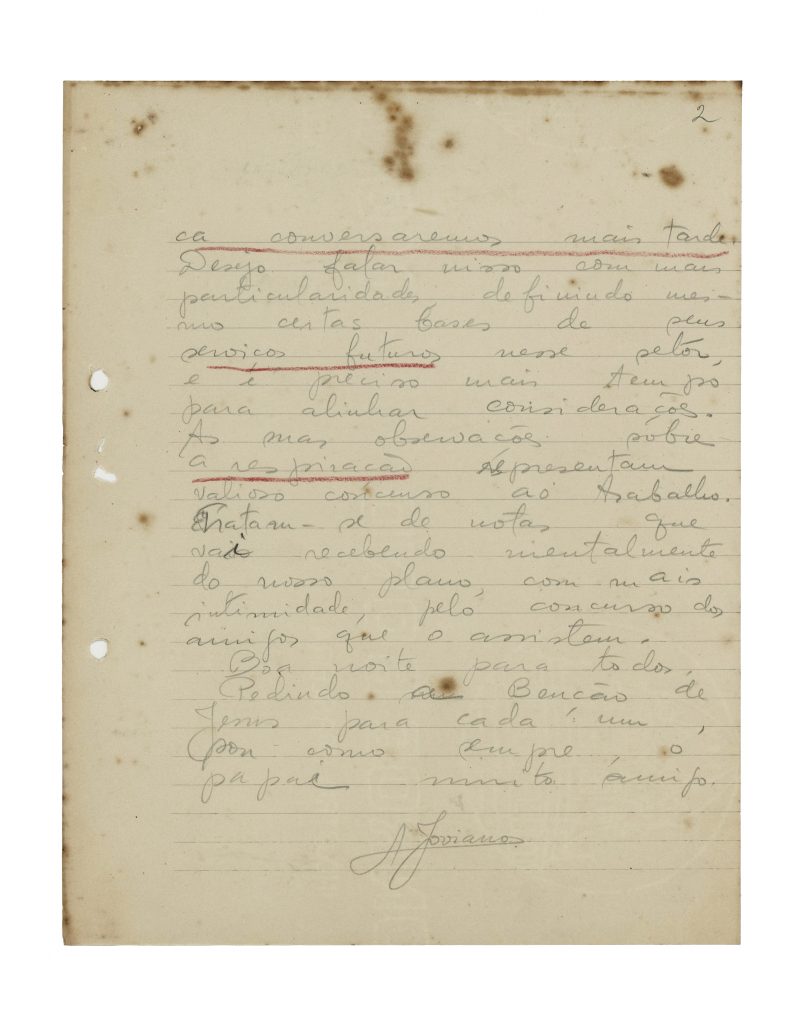 2
ca conversaremos mais tarde.
Desejo falar nisso com mais
particularidades definindo mes-
mo certas bases de seus
serviços futuros nesse setor,
e é preciso mais tempo
para alinhar considerações.
As suas observações sôbre
a respiração representam
valioso concurso ao trabalho.
Tratam-se de notas que
vai recebendo mentalmente
do nosso plano, com mais
intimidade, pelo concurso dos
amigos que o assistem.
Boa noite para todos.
Pedindo a Benção de
Jesus para cada um,
sou como sempre, o
papai muito amigo.
A Joviano